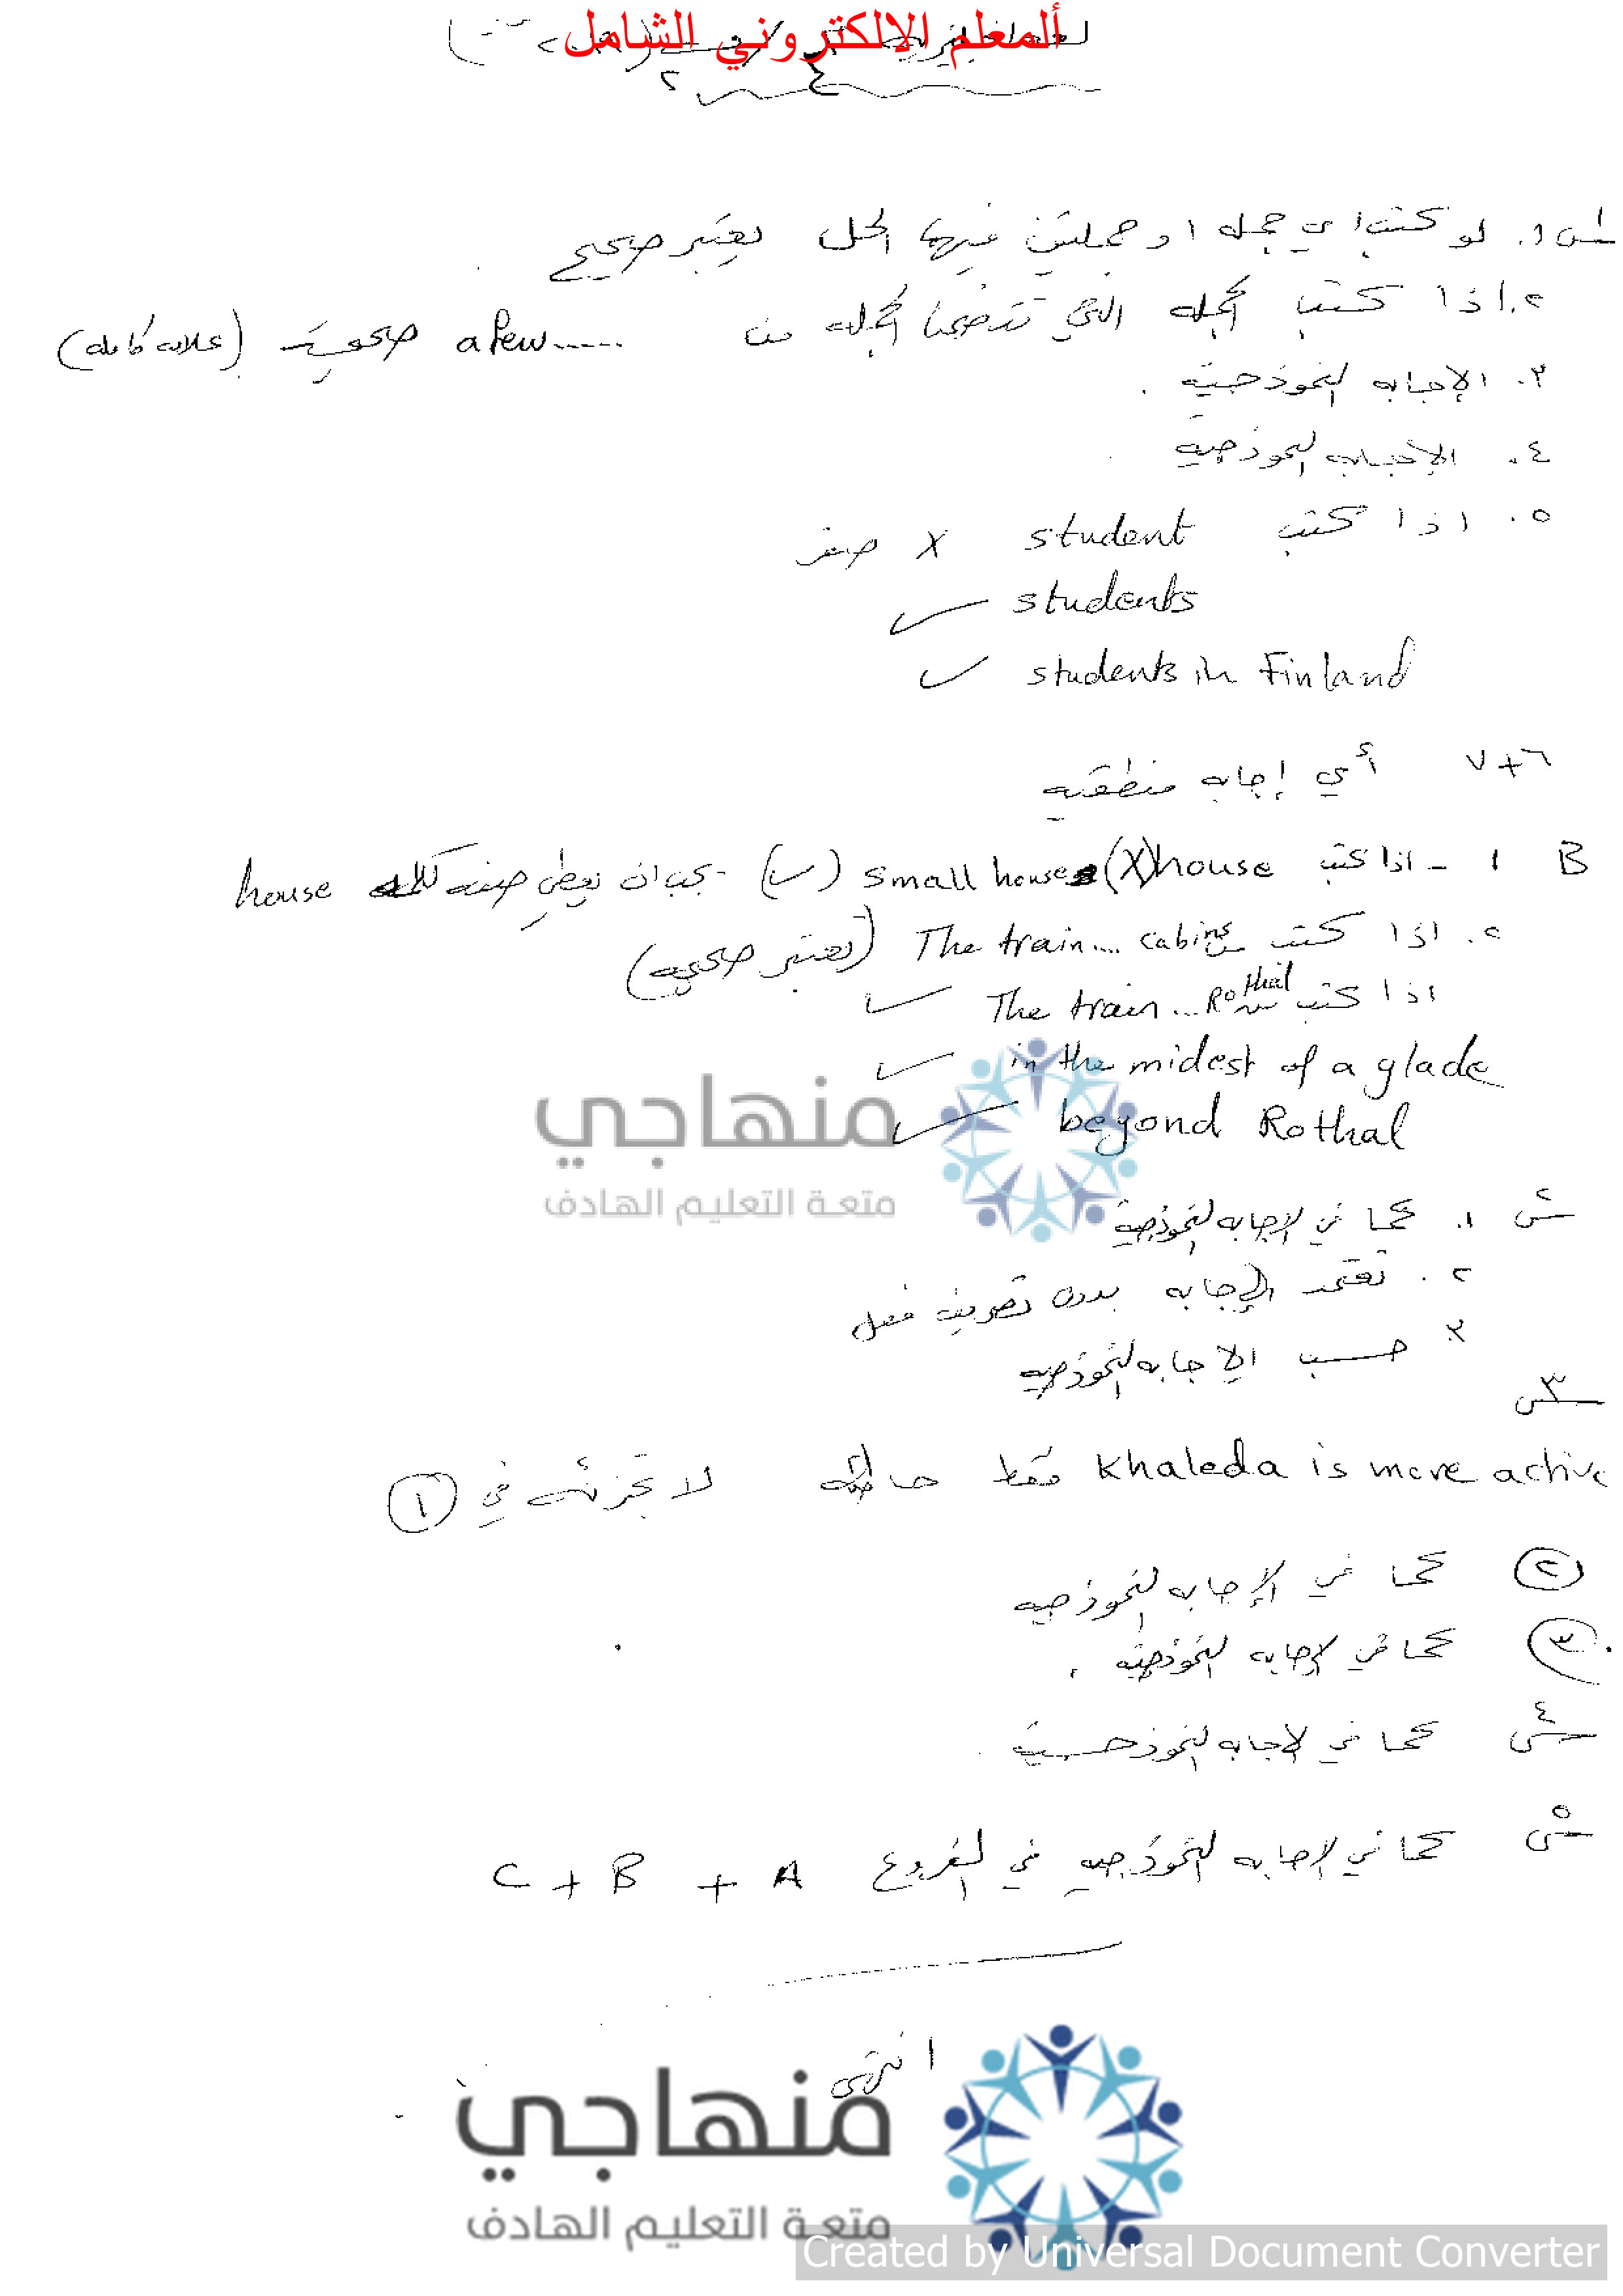 ألمعلم الالكتروني الشامل
س١ ١. لو كتب اي جمله او جملتين فيها الحل يعتبر صحيح
٢. اذا كتب الجمله التي تتضمن الجمله من a few...... صحيحة (علامه كامله)
٣. الإجابه النموذجية .
٤. الإجابه النموذجيه
٥. اذا كتب student X صفر
students ✓
students in Finland ✓
٦+٧ أي إجابه منطقيه
B ١ - اذا كتب house (X) small house (✓) يجب ان يعطي صفه لكلمه house
٢. اذا كتب من The train.... cabins (تعتبر صحيحه)
اذا كتب The train... Rothal ✓
in the midest of a glade ✓
beyond Rothal ✓
س٢ ١. كما في الاجابه النموذجية
٢. تعتمد الإجابه بدون تصريف فعل
٣ حسب الاجابه النموذجيه
س٣
Khaleda is more active فقط لا تجزئه في ①
② كما في الإجابه النموذجيه
③ كما في الإجابه النموذجيه .
س٤ كما في الاجابه النموذجية
س٥ كما في الاجابه النموذجيه في الفروع A + B + C
انتهى
منهاجي
متعة التعليم الهادف
منهاجي
متعة التعليم الهادف
Created by Universal Document Converter